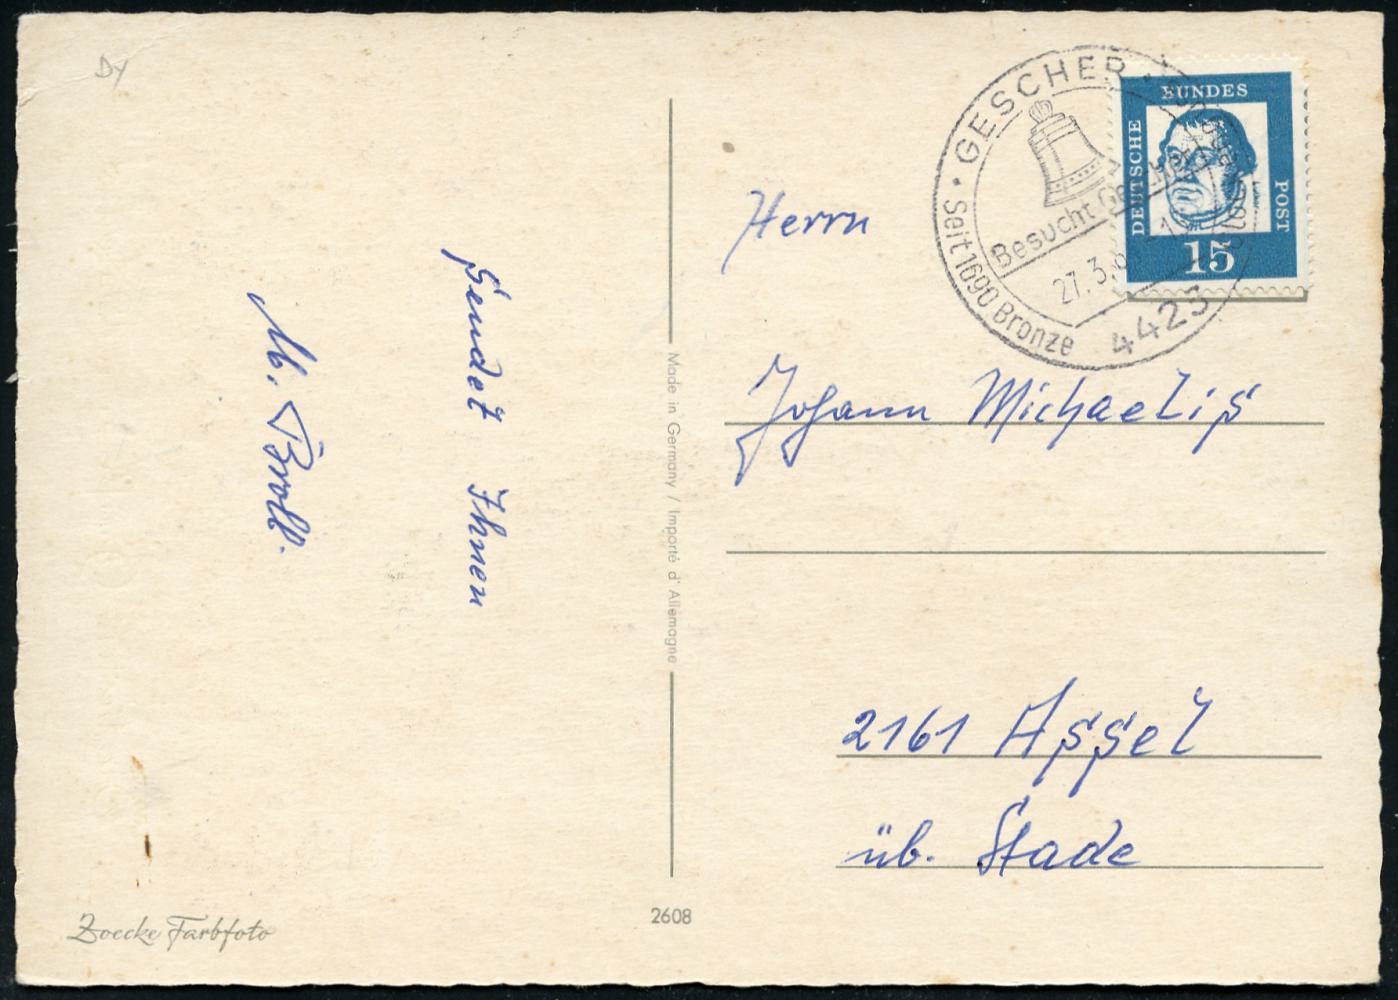 Dy
sendet Ihnen
M. Broll.
Zoecke Farbfoto
Made in Germany / Importé d'Allemagne
2608
GESCHER
Seit 1690 Bronze
Besucht
27.3.
4423
DEUTSCHE
BUNDES
POST
15
Herrn
Johann Michaelis
2161 Assel
üb. Stade